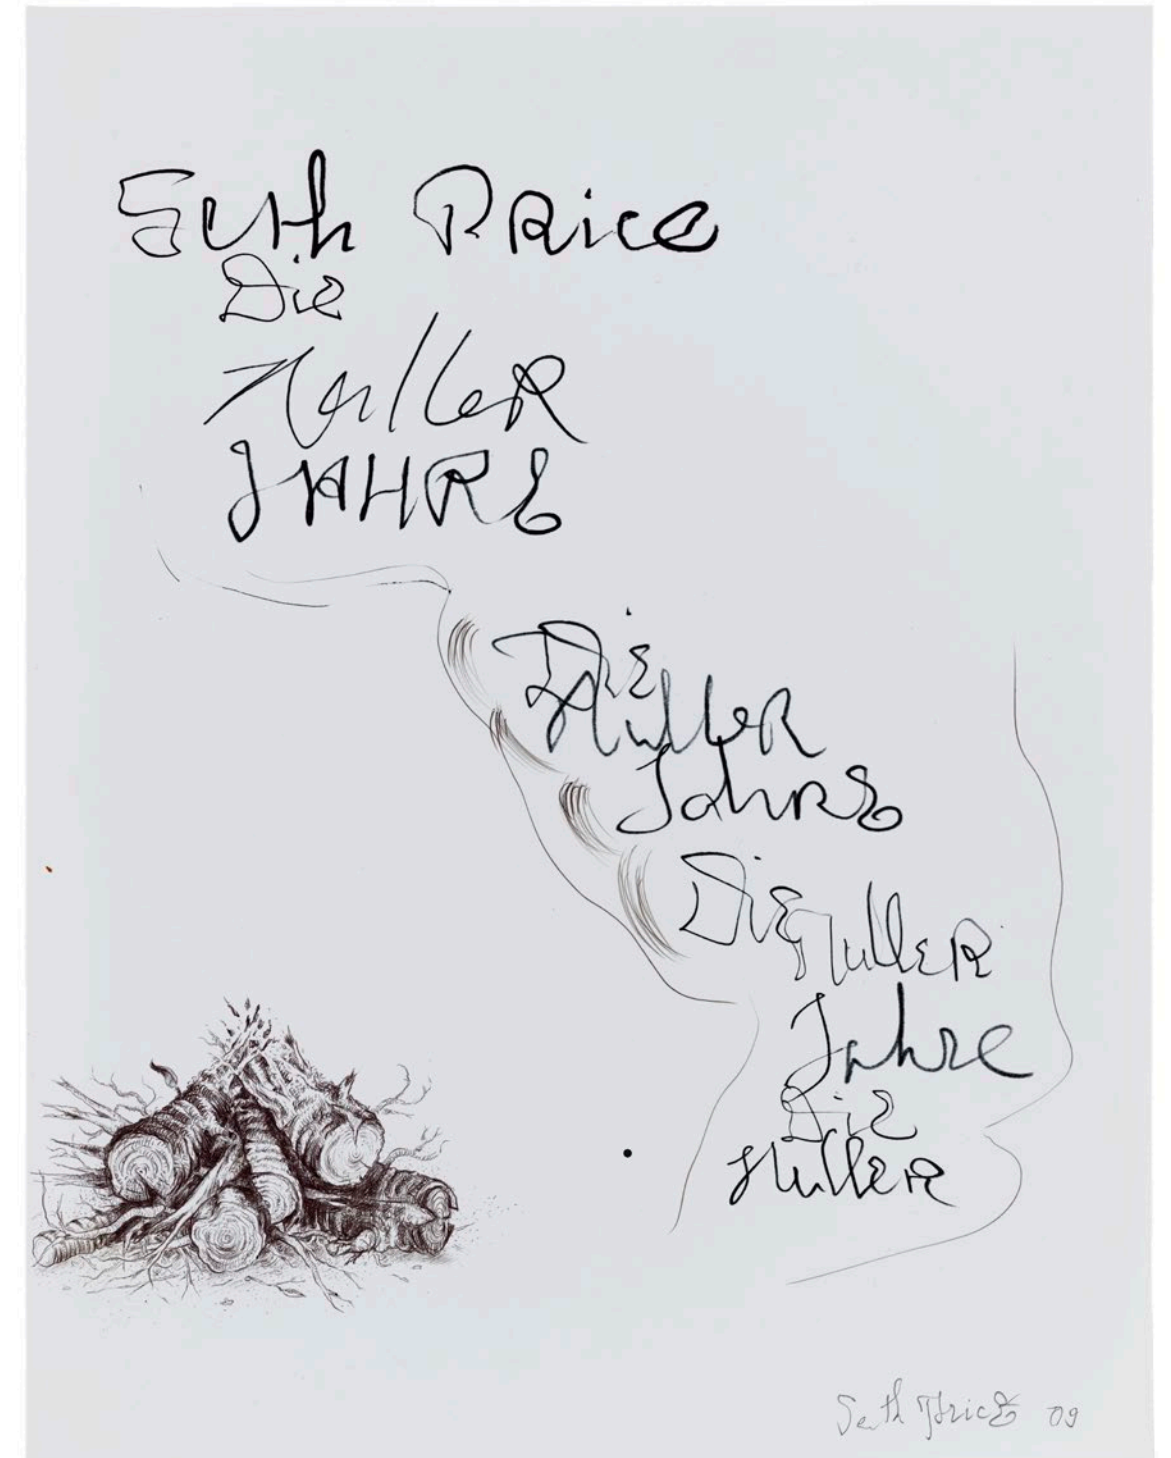 Seth PRice
Die
HullER
JAHRE
DiE
HullER
JahRE
DiE HullER
Jahre
DiE
HulleR
Seth PricE 09